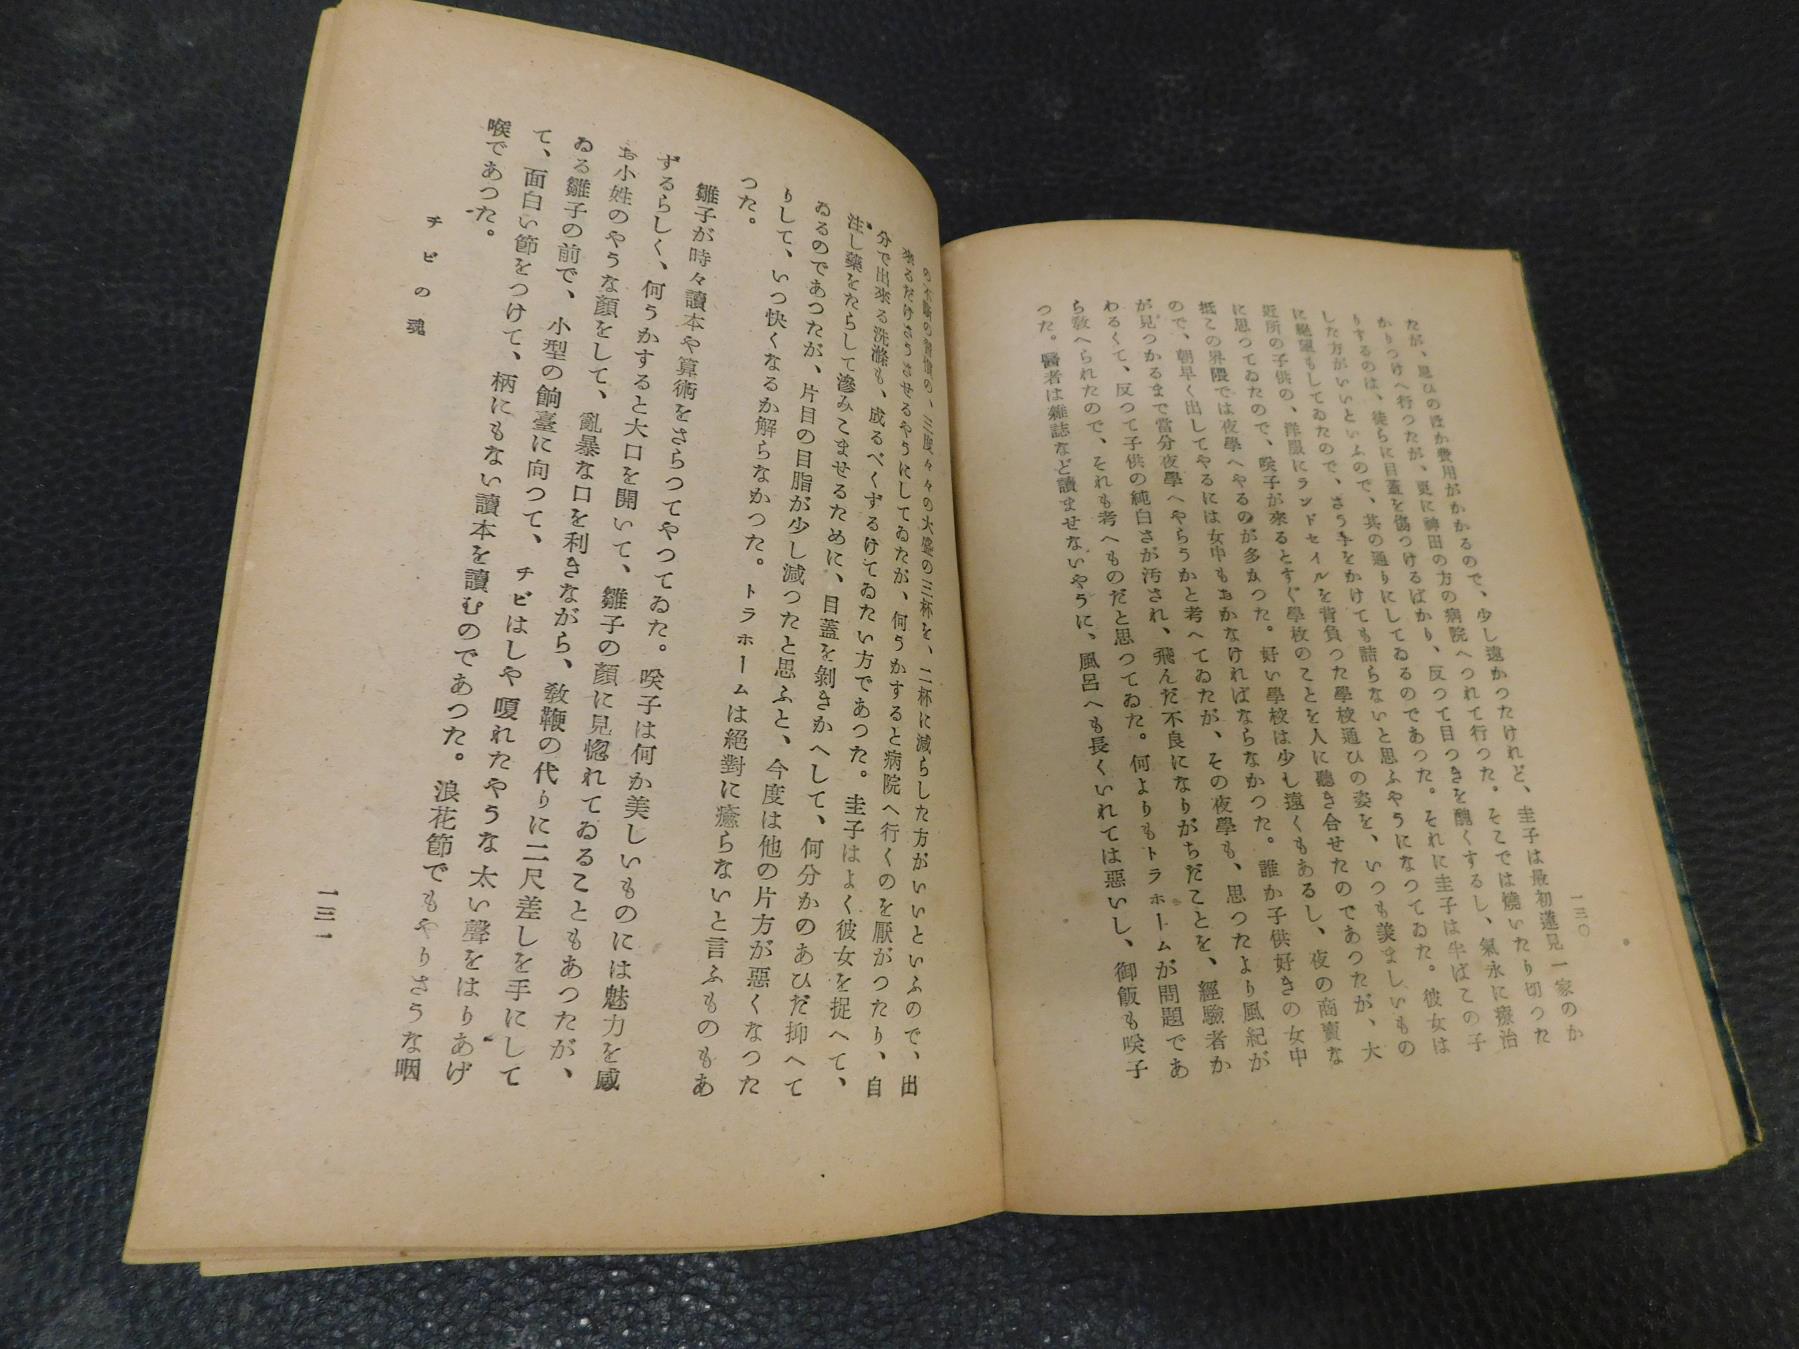 一三〇
たが、思ひのほか費用がかかるので、少し遠かつたけれど、圭子は最初蓮見一家のか
かりつけへ行つたが、更に神田の方の病院へつれて行つた。そこでは燒いたり切つた
りするのは、徒らに目蓋を傷つけるばかり、反つて目つきを醜くするし、氣永に療治
した方がいいといふので、其の通りにしてゐるのであつた。それに圭子は半ばこの子
に絶望もしてゐたので、さう手をかけても詰らないと思ふやうになつてゐた。彼女は
近所の子供の、洋服にランドセイルを背負つた學校通ひの姿を、いつも羨ましいもの
に思つてゐたので、咲子が來るとすぐ學校のことを人に聽き合せたのであつたが、大
抵この界隈では夜學へやるのが多かつた。好い學校は少し遠くもあるし、夜の商賣な
ので、朝早く出してやるには女中もおかなければならなかつた。誰か子供好きの女中
が見つかるまで當分夜學へやらうかと考へてゐたが、その夜學も、思つたより風紀が
わるくて、反つて子供の純白さが汚され、飛んだ不良になりがちだことを、經驗者か
ら敎へられたので、それも考へものだと思つてゐた。何よりもトラホームが問題であ
つた。醫者は雜誌など讀ませないやうに、風呂へも長くいれては惡いし、御飯も咲子
の不斷の習慣の、三度々々の大盛の三杯を、二杯に減らした方がいいといふので、出
來るだけさうさせるやうにしてゐたが、何うかすると病院へ行くのを厭がつたり、自
分で出來る洗滌も、成るべくずるけてゐたい方であつた。圭子はよく彼女を捉へて、
注し藥をたらして滲みこませるために、目蓋を剝きかへして、何分かのあひだ抑へて
ゐるのであつたが、片目の目脂が少し減つたと思ふと、今度は他の片方が惡くなつた
りして、いつ快くなるか解らなかつた。トラホームは絕對に癒らないと言ふものもあ
つた。
雛子が時々讀本や算術をさらつてやつてゐた。咲子は何か美しいものには魅力を感
ずるらしく、何うかすると大口を開いて、雛子の顏に見惚れてゐることもあつたが、
お小姓のやうな顏をして、亂暴な口を利きながら、敎鞭の代りに二尺差しを手にして
ゐる雛子の前で、小型の餉臺に向つて、チビはしや嗄れたやうな太い聲をはりあげ
て、面白い節をつけて、柄にもない讀本を讀むのであつた。浪花節でもやりさうな咽
喉であつた。
チビの魂
一三一